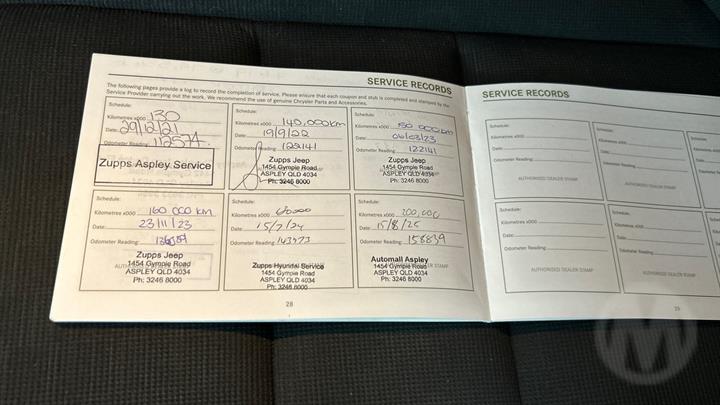 SERVICE RECORDS
The following pages provide a log to record the completion of service. Please ensure that each coupon and stub is completed and stamped by the
Service Provider carrying out the work. We recommend the use of genuine Chrysler Parts and Accessories.
Schedule:
Kilometres x000 130
Date: 29/12/21
Odometer Reading: 112574
Zupps Aspley Service
Schedule:
Kilometres x000 140,000km
Date: 19/9/22
Odometer Reading:
Zupps Jeep
1454 Gympie Road
ASPLEY QLD 4034
Ph: 3246 8000
Schedule:
Kilometres x000 50 000km
Date: 06/03/23
Odometer Reading: 122141
Zupps Jeep
1454 Gympie Road
ASPLEY QLD 4034
Ph: 3246 8000
Schedule:
Kilometres x000 160 000 km
Date: 23/11/23
Odometer Reading:
Zupps Jeep
1454 Gympie Road
ASPLEY QLD 4034
Ph: 3246 8000
Schedule:
Kilometres x000
Date: 15/7/24
Odometer Reading: 143973
Zupps Hyundai Service
1454 Gympie Road
ASPLEY QLD 4034
Ph: 3246 8000
Schedule:
Kilometres x000 200,000
Date: 15/8/25
Odometer Reading: 158839
Automall Aspley
1454 Gympie Road
ASPLEY QLD 4034
Ph: 3246 8000
28
SERVICE RECORDS
Schedule:
Kilometres x000
Date:
Odometer Reading:
AUTHORISED DEALER STAMP
Schedule:
Kilometres x000
Date:
Odometer Reading
AUTHORISED DEALER STAMP
Schedule:
Kilometres x000
Date:
Odometer Reading:
AUTHORISED DEALER STAMP
Schedule:
Kilometres x000
Date:
Odometer Reading
AUTHORISED DEALER STAMP
29
M